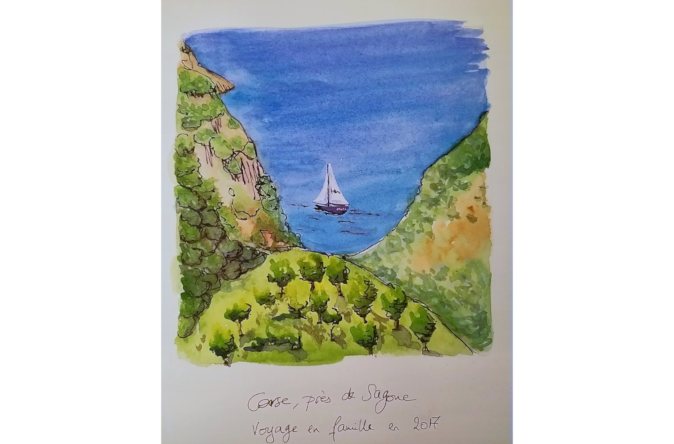 Corse, près de Sagone
Voyage en famille en 2017